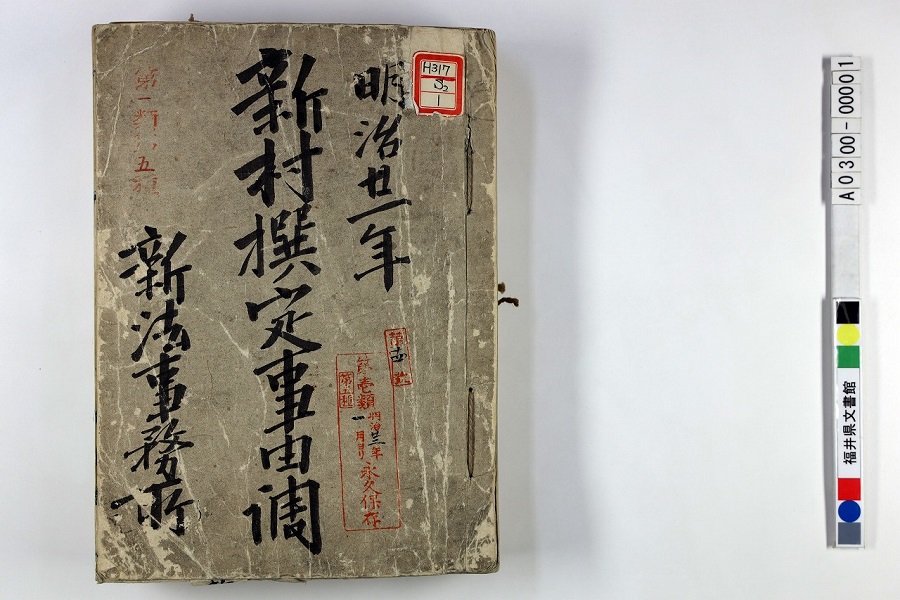 明治廿一年
新村撰定事由調
新法事務所
第一類
五
H317
S2
1
第壱類
第五種
明治廿三年
一月ヨリ
永久保存
A0300-00001
福井県文書館